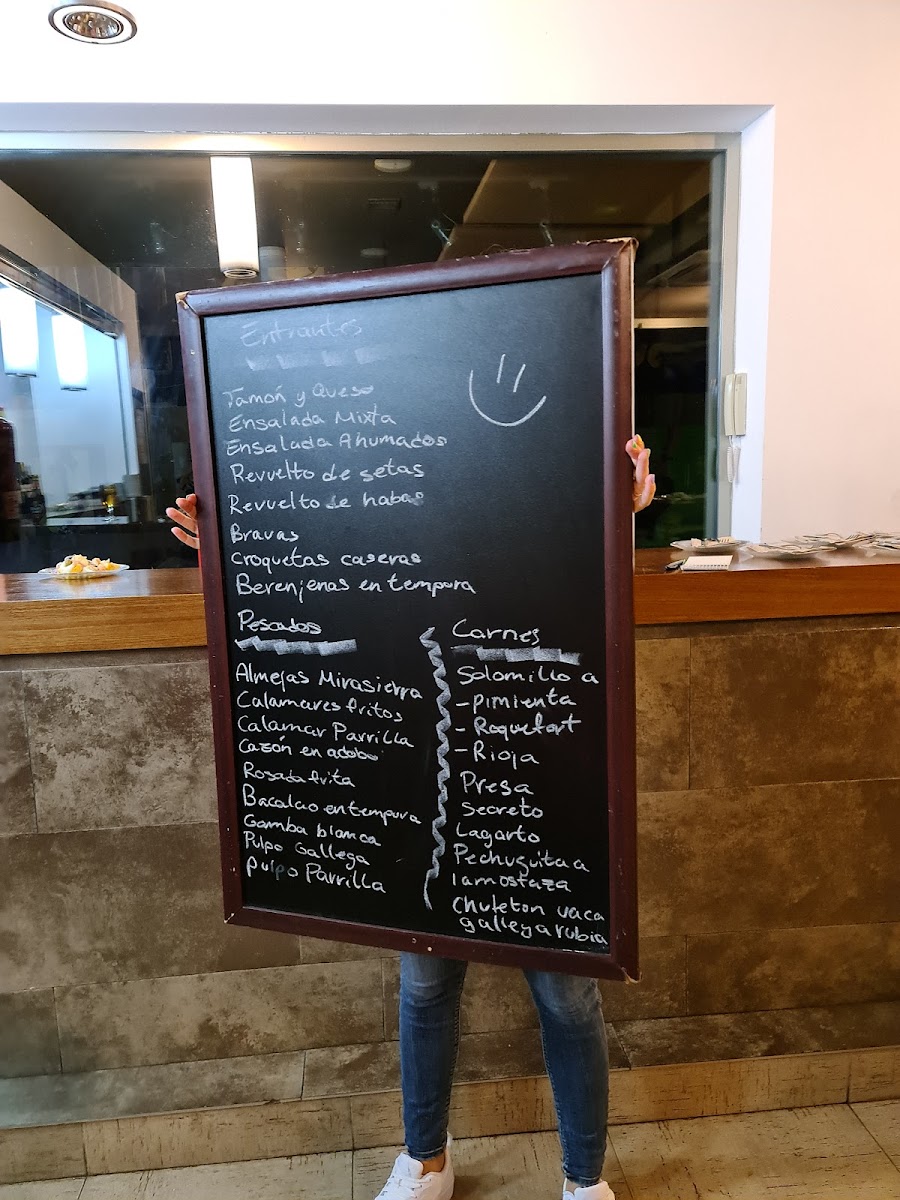 Entrantes
Jamón y Queso
Ensalada Mixta
Ensalada Ahumados
Revuelto de setas
Revuelto de habas
Bravas
Croquetas caseras
Berenjenas en tempura
Pescados
Almejas Mirasierra
Calamares fritos
Calamar Parrilla
Cazón en adobo
Rosada frita
Bacalao en tempura
Gamba blanca
Pulpo Gallega
Pulpo Parrilla
Carnes
Solomillo a
- Pimienta
- Roquefort
- Rioja
Presa
Secreto
Lagarto
Pechuguita a
la mostaza
Chuleton vaca
gallega rubia